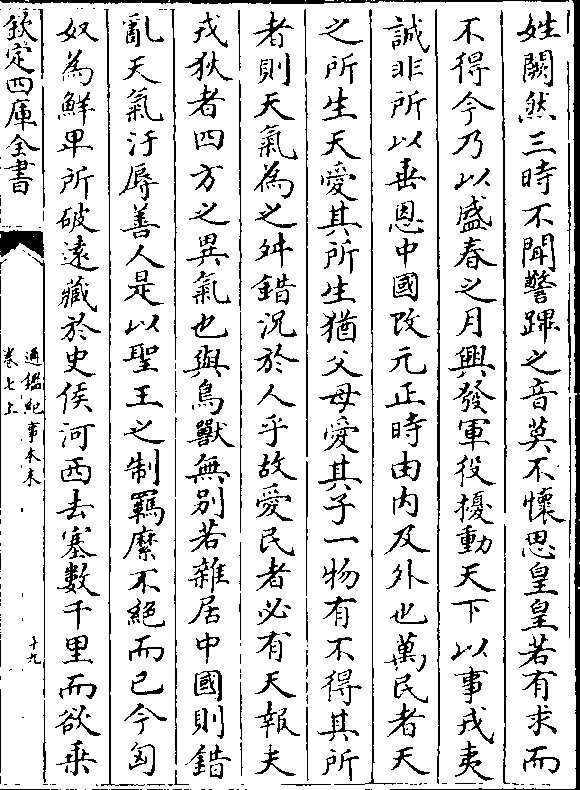 姓闕然三時不聞警蹕之音莫不懷思皇皇若有求而
不得今乃以盛春之月興發軍役擾動天下以事戎夷
誠非所以垂恩中國改元正時由内及外也萬民者天
之所生天愛其所生猶父母愛其子一物有不得其所
者則天氣為之舛錯況於人乎故愛民者必有天報夫
戎狄者四方之異氣也與鳥獸無別若雜居中國則錯
亂天氣汙辱善人是以聖王之制羈縻不絕而已今匈
奴為鮮卑所破遠藏於史侯河西去塞數千里而欲乗
欽定四庫全書
通鑑紀事本末
卷七上
十九